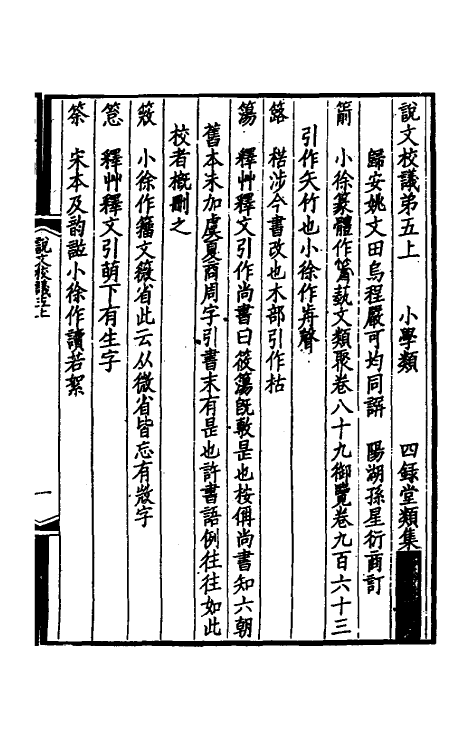 說文校議弟五上 小學類 四録堂類集
歸安姚文田烏程嚴可均同譔 陽湖孫星衍商訂
箭 小徐篆體作𥴥蓺文類聚卷八十九御覽卷九百六十三
引作矢竹也小徐作歬聲
簬 楛涉今書改也木部引作枯
簜 釋艸釋文引作尚書曰筱簜旣敷是也桉偁尚書知六朝
舊本未加虞夏商周字引書末有是也許書語例往往如此
校者槪刪之
簸 小徐作籒文𥷚省此云从微省皆忘有㪵字
䈚 釋艸釋文引萌下有生字
筡 宋本及韵譜小徐作讀若絮
說文校議五上
一